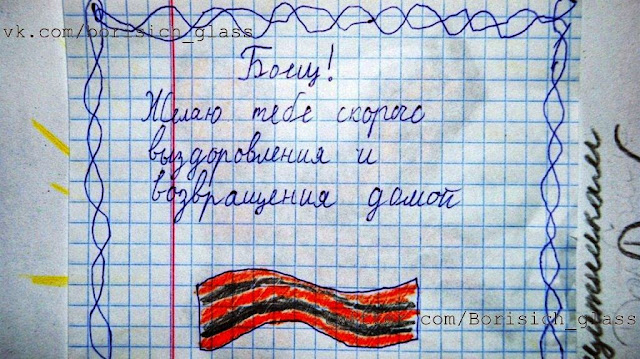 vk.com/borisich_glass
Боец!
Желаю тебе скорого
выздоровления и
возвращения домой
vk.com/Borisich_glass